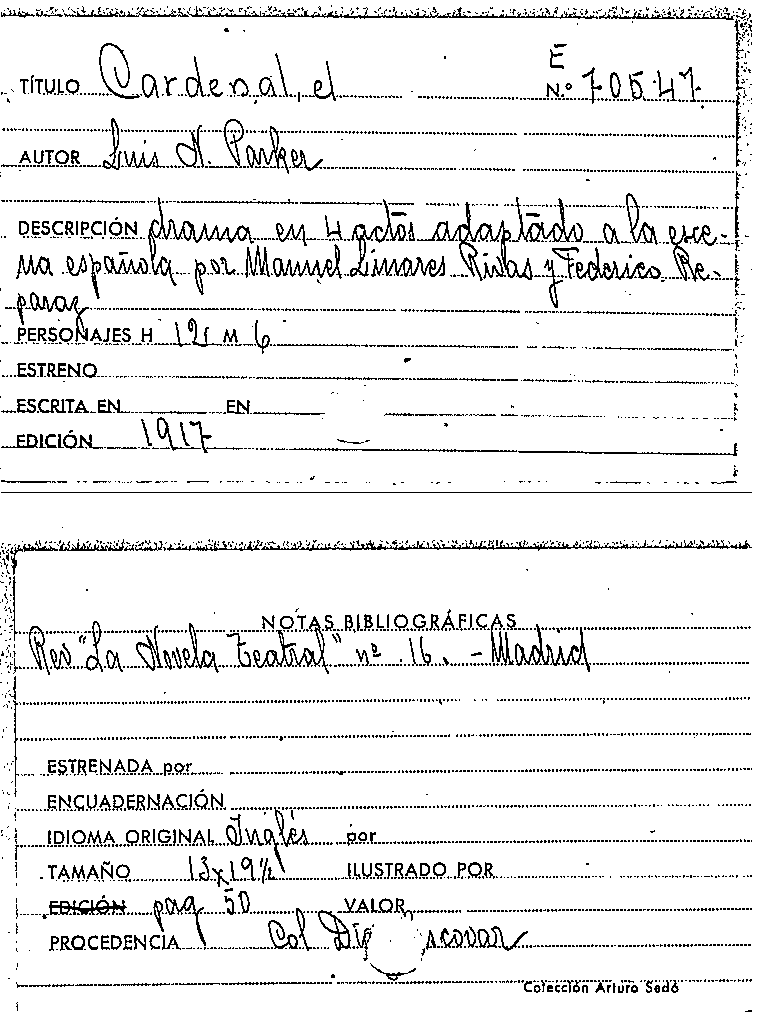 E
TÍTULO Cardenal, el N.º 70547
AUTOR Luis N. Parker
DESCRIPCIÓN drama en 4 actos adaptado a la esce-
na española por Manuel Linares Rivas y Federico Re-
paraz
PERSONAJES H 12 M 6
ESTRENO
ESCRITA EN EN
EDICIÓN 1917
NOTAS BIBLIOGRÁFICAS
Rev "La Novela Teatral" nº 16. - Madrid
ESTRENADA por
ENCUADERNACIÓN
IDIOMA ORIGINAL Inglés por
TAMAÑO 13x19½ ILUSTRADO POR
EDICIÓN pag 50 VALOR
PROCEDENCIA Col
Colección Arturo Sedó